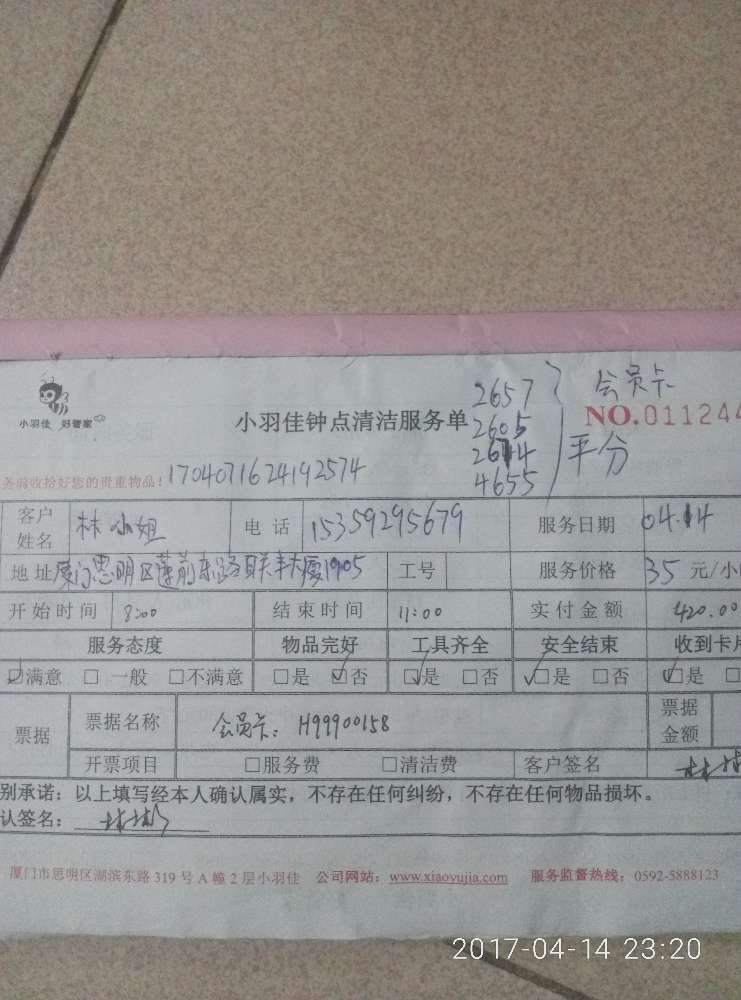 2657 会员卡
小羽佳 好管家
小羽佳钟点清洁服务单 2605 NO.011244
2614 平分
4655
务前收拾好您的贵重物品! 1704071624192574
客户姓名 林小姐 电话 15359295679 服务日期 04.14
地址 厦门思明区莲前东路联丰大厦1905 工号 服务价格 35 元/小
开始时间 8:00 结束时间 11:00 实付金额 420.00
服务态度 物品完好 工具齐全 安全结束 收到卡
☑满意 □一般 □不满意 □是 ☑否 ☑是 □否 ☑是 □否 ☑是 □
票据 票据名称 会员卡: H99900158 票据金额
开票项目 □服务费 □清洁费 客户签名
别承诺：以上填写经本人确认属实，不存在任何纠纷，不存在任何物品损坏。
认签名：
厦门市思明区湖滨东路 319 号 A 幢 2 层小羽佳 公司网站：www.xiaoyujia.com 服务监督热线：0592-5888123
2017-04-14 23:20